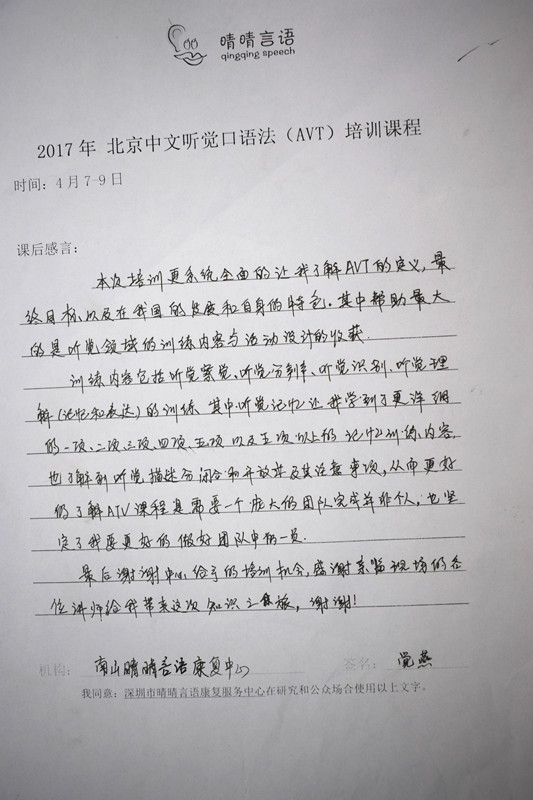 晴晴言语
qingqing speech
2017年 北京中文听觉口语法（AVT）培训课程
时间：4月7-9日
课后感言：
本次培训更系统全面的让我了解AVT的定义，最
终目标，以及在我国的发展和自身的特色。其中帮助最大
的是听觉领域的训练内容与活动设计的收获。
训练内容包括听觉察觉、听觉分辨、听觉识别、听觉理
解（记忆和表达）的训练，其中听觉记忆让我学到了更详细
的一项、二项、三项、四项、五项以及五项以上的记忆训练内容，
也了解到听觉描述分闭合和开放并及其注意事项，从而更好
的了解ATV课程是需要一个庞大的团队完成并非个人，也坚
定了我要更好的做好团队中的一员.
最后谢谢中心给予的培训机会，感谢亲临现场的各
位讲师给我带来这次知识之旅，谢谢！
机构：南山晴晴言语康复中心 签名：党燕
我同意：深圳市晴晴言语康复服务中心在研究和公众场合使用以上文字。